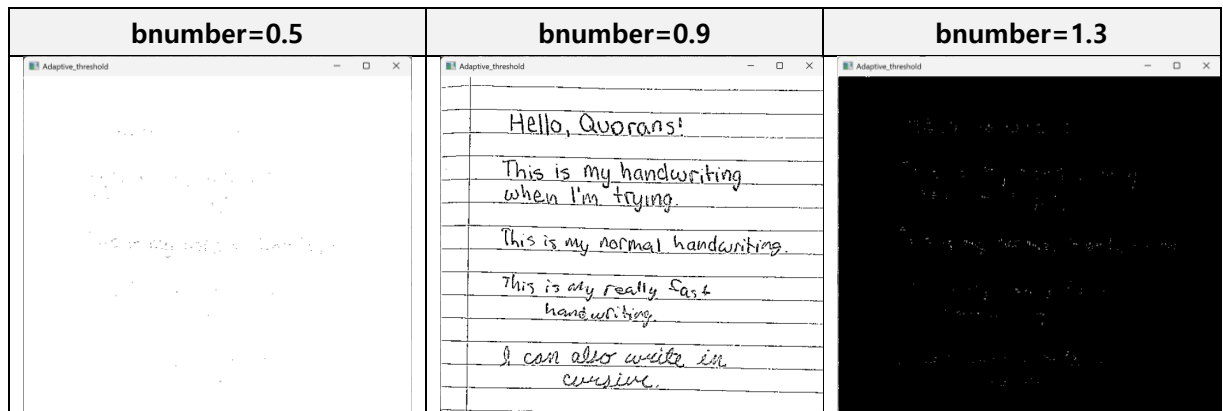 bnumber=0.5 bnumber=0.9 bnumber=1.3
Adaptive_threshold Adaptive_threshold Adaptive_threshold
Hello, Quorans!
This is my handwriting
when I'm trying.
This is my normal handwriting.
This is my really fast
handwriting.
I can also write in
cursive.